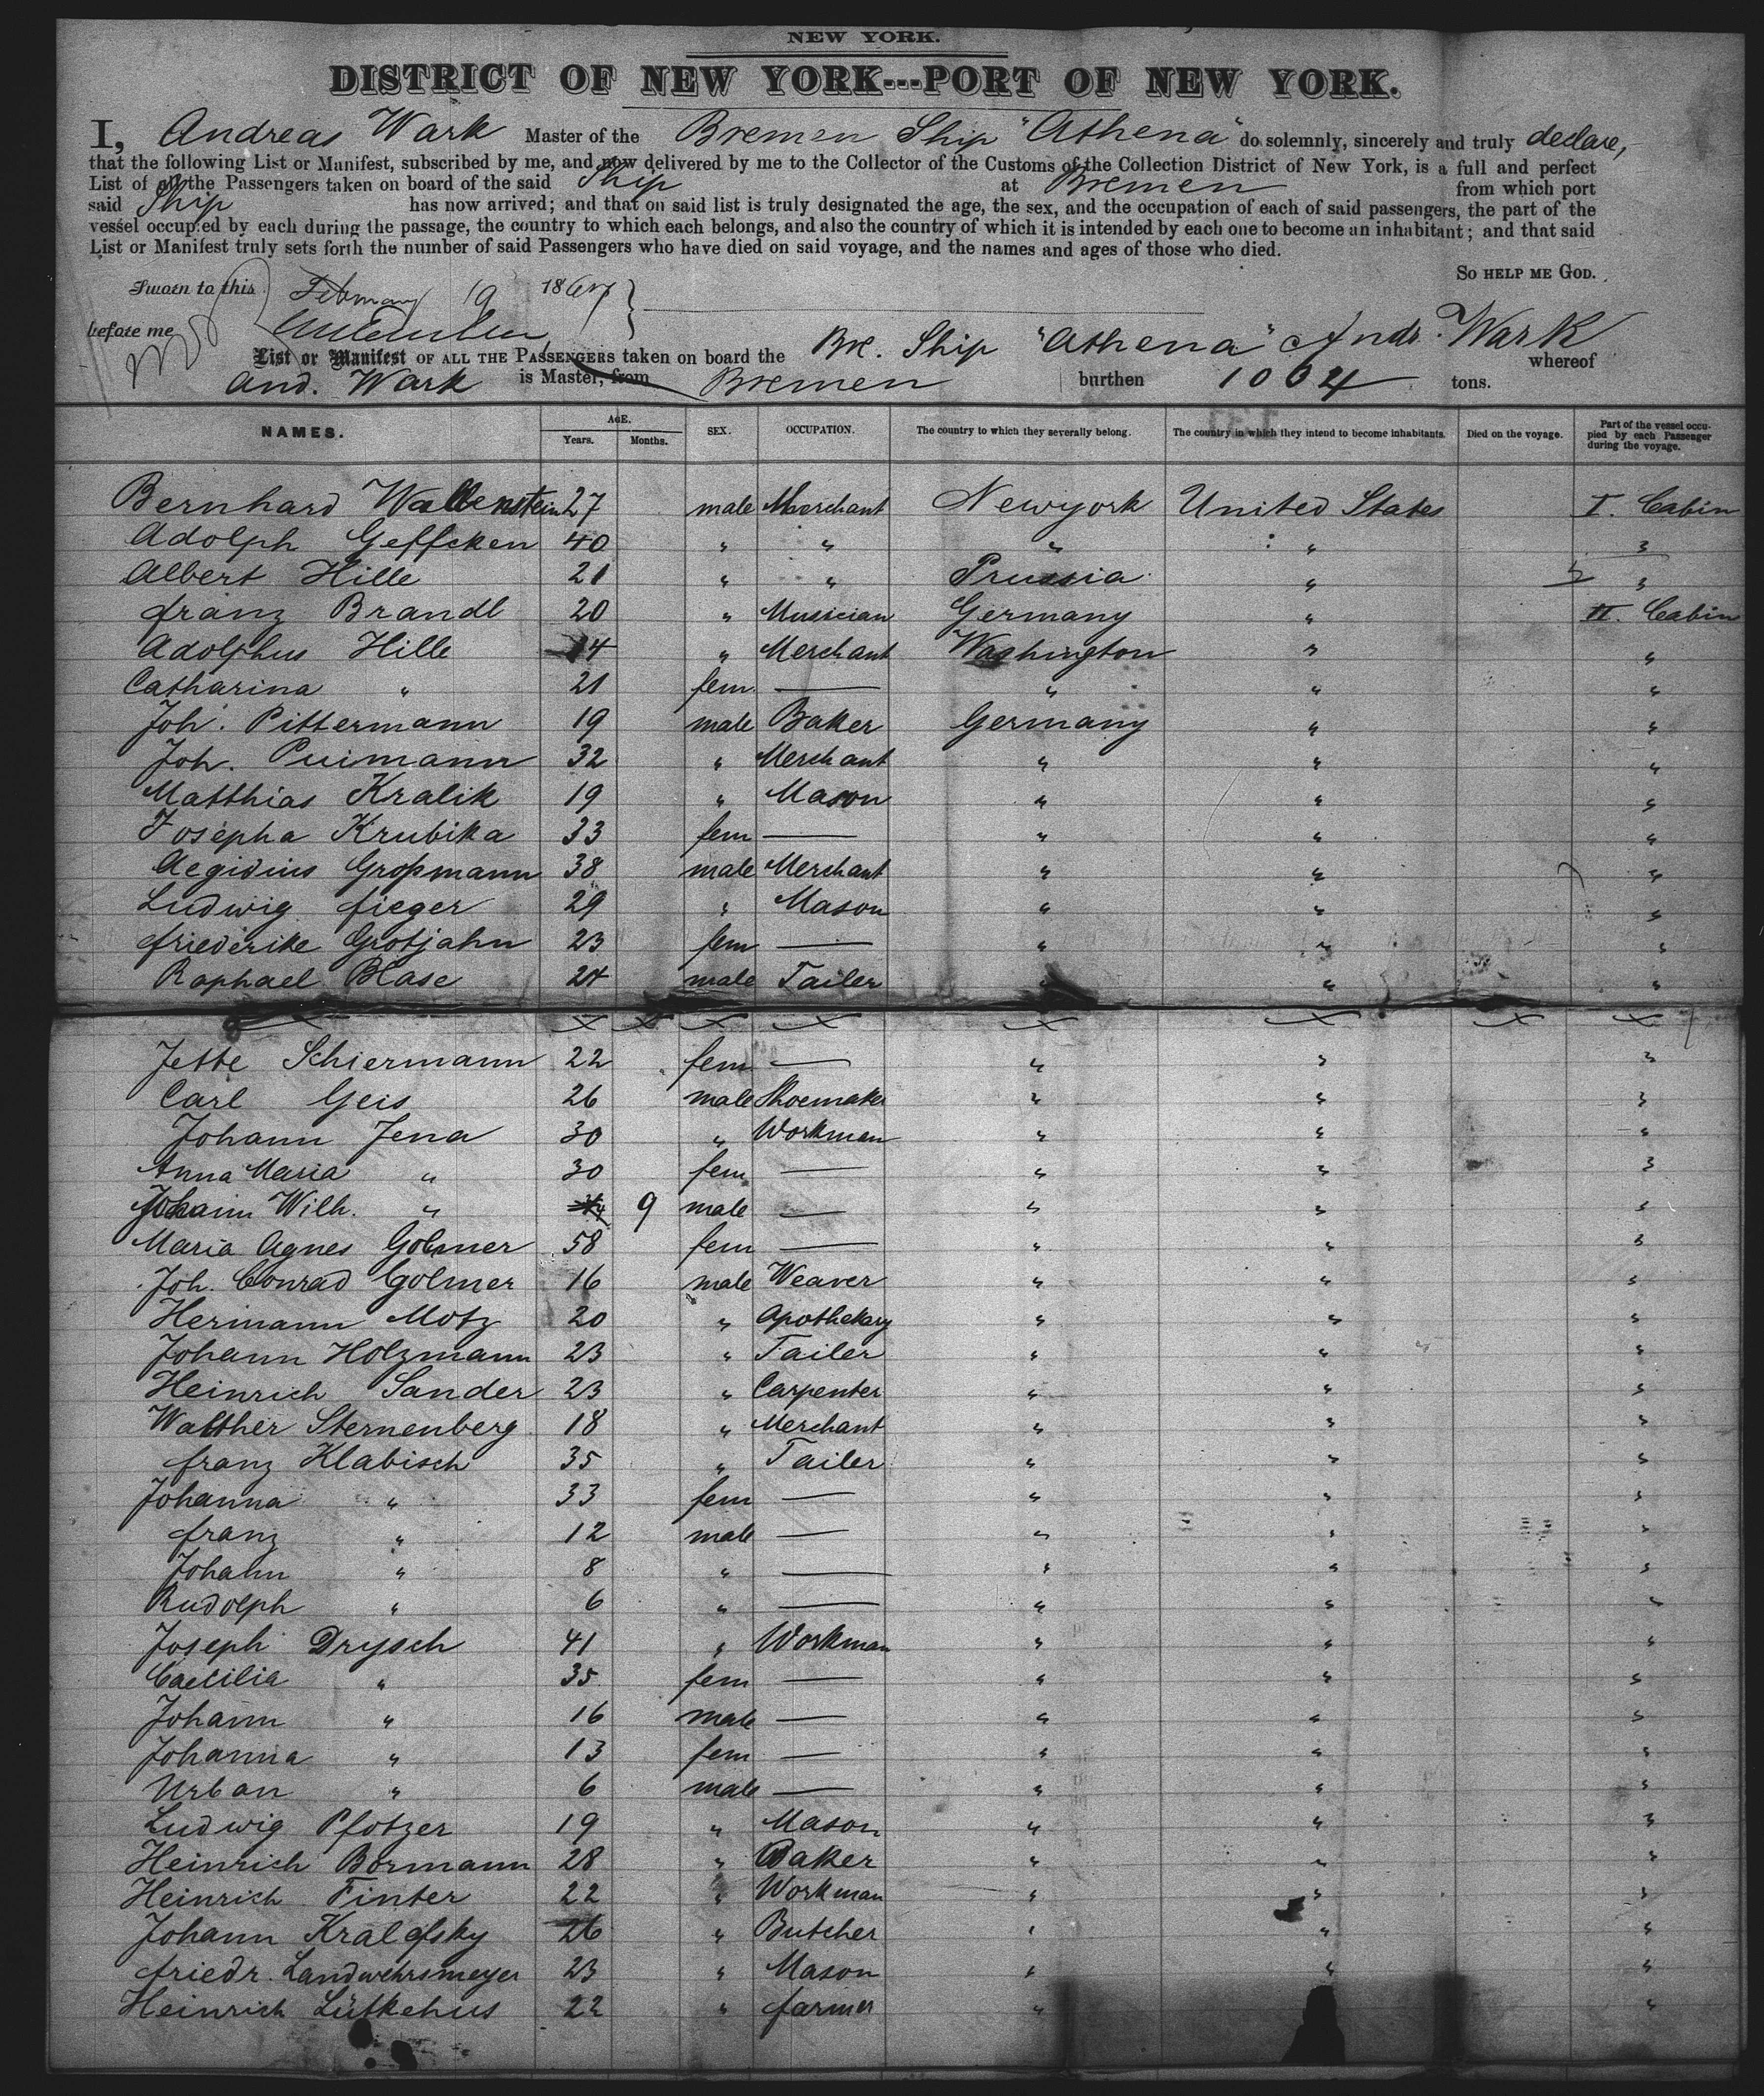 NEW YORK.
DISTRICT OF NEW YORK---PORT OF NEW YORK.
I, Andreas Wark Master of the Bremen Ship "Athena" do solemnly, sincerely and truly declare,
that the following List or Manifest, subscribed by me, and now delivered by me to the Collector of the Customs of the Collection District of New York, is a full and perfect
List of all the Passengers taken on board of the said Ship at Bremen from which port
said Ship has now arrived; and that on said list is truly designated the age, the sex, and the occupation of each of said passengers, the part of the
vessel occupied by each during the passage, the country to which each belongs, and also the country of which it is intended by each one to become an inhabitant; and that said
List or Manifest truly sets forth the number of said Passengers who have died on said voyage, and the names and ages of those who died.
SO HELP ME GOD.
Sworn to this February 19 1867
before me
Andr. Wark
List or Manifest OF ALL THE PASSENGERS taken on board the Bre. Ship "Athena" whereof
And. Wark is Master, from Bremen burthen 1004 tons.
NAMES. AGE. Years. Months. SEX. OCCUPATION. The country to which they severally belong. The country in which they intend to become inhabitants. Died on the voyage. Part of the vessel occupied by each Passenger during the voyage.
Bernhard Wallenstein 27 male Merchant Newyork United States I. Cabin
Adolph Geffcken 40 " " " " "
Albert Hille 21 " " Prussia " "
franz Brandl 20 " Musician Germany " II. Cabin
Adolphus Hille 14 " Merchant Washington " "
Catharina " 21 fem — " " "
Joh. Pittermann 19 male Baker Germany " "
Joh. Puimann 32 " Merchant " " "
Matthias Kralik 19 " Mason " " "
Josepha Krubika 33 fem — " " "
Aegidius Großmann 38 male Merchant " " "
Ludwig fieger 29 " Mason " " "
friederike Grotjahn 23 fem — " " "
Raphael Blase 24 male Tailer " " "
Jette Schiermann 22 fem — " " "
Carl Geis 26 male Shoemaker " " "
Johann Jena 30 " Workman " " "
Anna Maria " 30 fem — " " "
Johann Wilh. " 9 male — " " "
Maria Agnes Golmer 58 fem — " " "
Joh. Conrad Golmer 16 male Weaver " " "
Hermann Motz 20 " Apothekary " " "
Johann Holzmann 23 " Tailer " " "
Heinrich Sander 23 " Carpenter " " "
Walther Sternenberg 18 " Merchant " " "
franz Klabisch 35 " Tailer " " "
Johanna " 33 fem — " " "
franz " 12 male — " " "
Johann " 8 " — " " "
Rudolph " 6 " — " " "
Joseph Drysch 41 " Workman " " "
Caecilia " 35 fem — " " "
Johann " 16 male — " " "
Johanna " 13 fem — " " "
Urban " 6 male — " " "
Ludwig Pfotzer 19 " Mason " " "
Heinrich Bormann 28 " Baker " " "
Heinrich Finter 22 " Workman " " "
Johann Kralofsky 26 " Butcher " " "
friedr. Landwehrsmeyer 23 " Mason " " "
Heinrich Lütkehus 22 " farmer " "